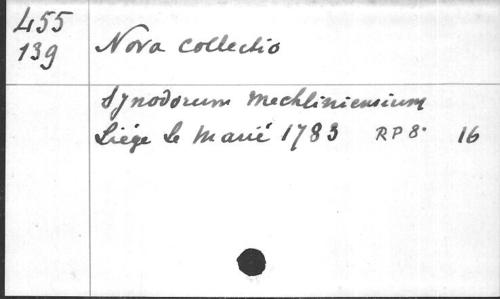 455
139
Nova collectio
Synodorum Mechliniensium
Liége Le Marié 1783 RP 8° 16